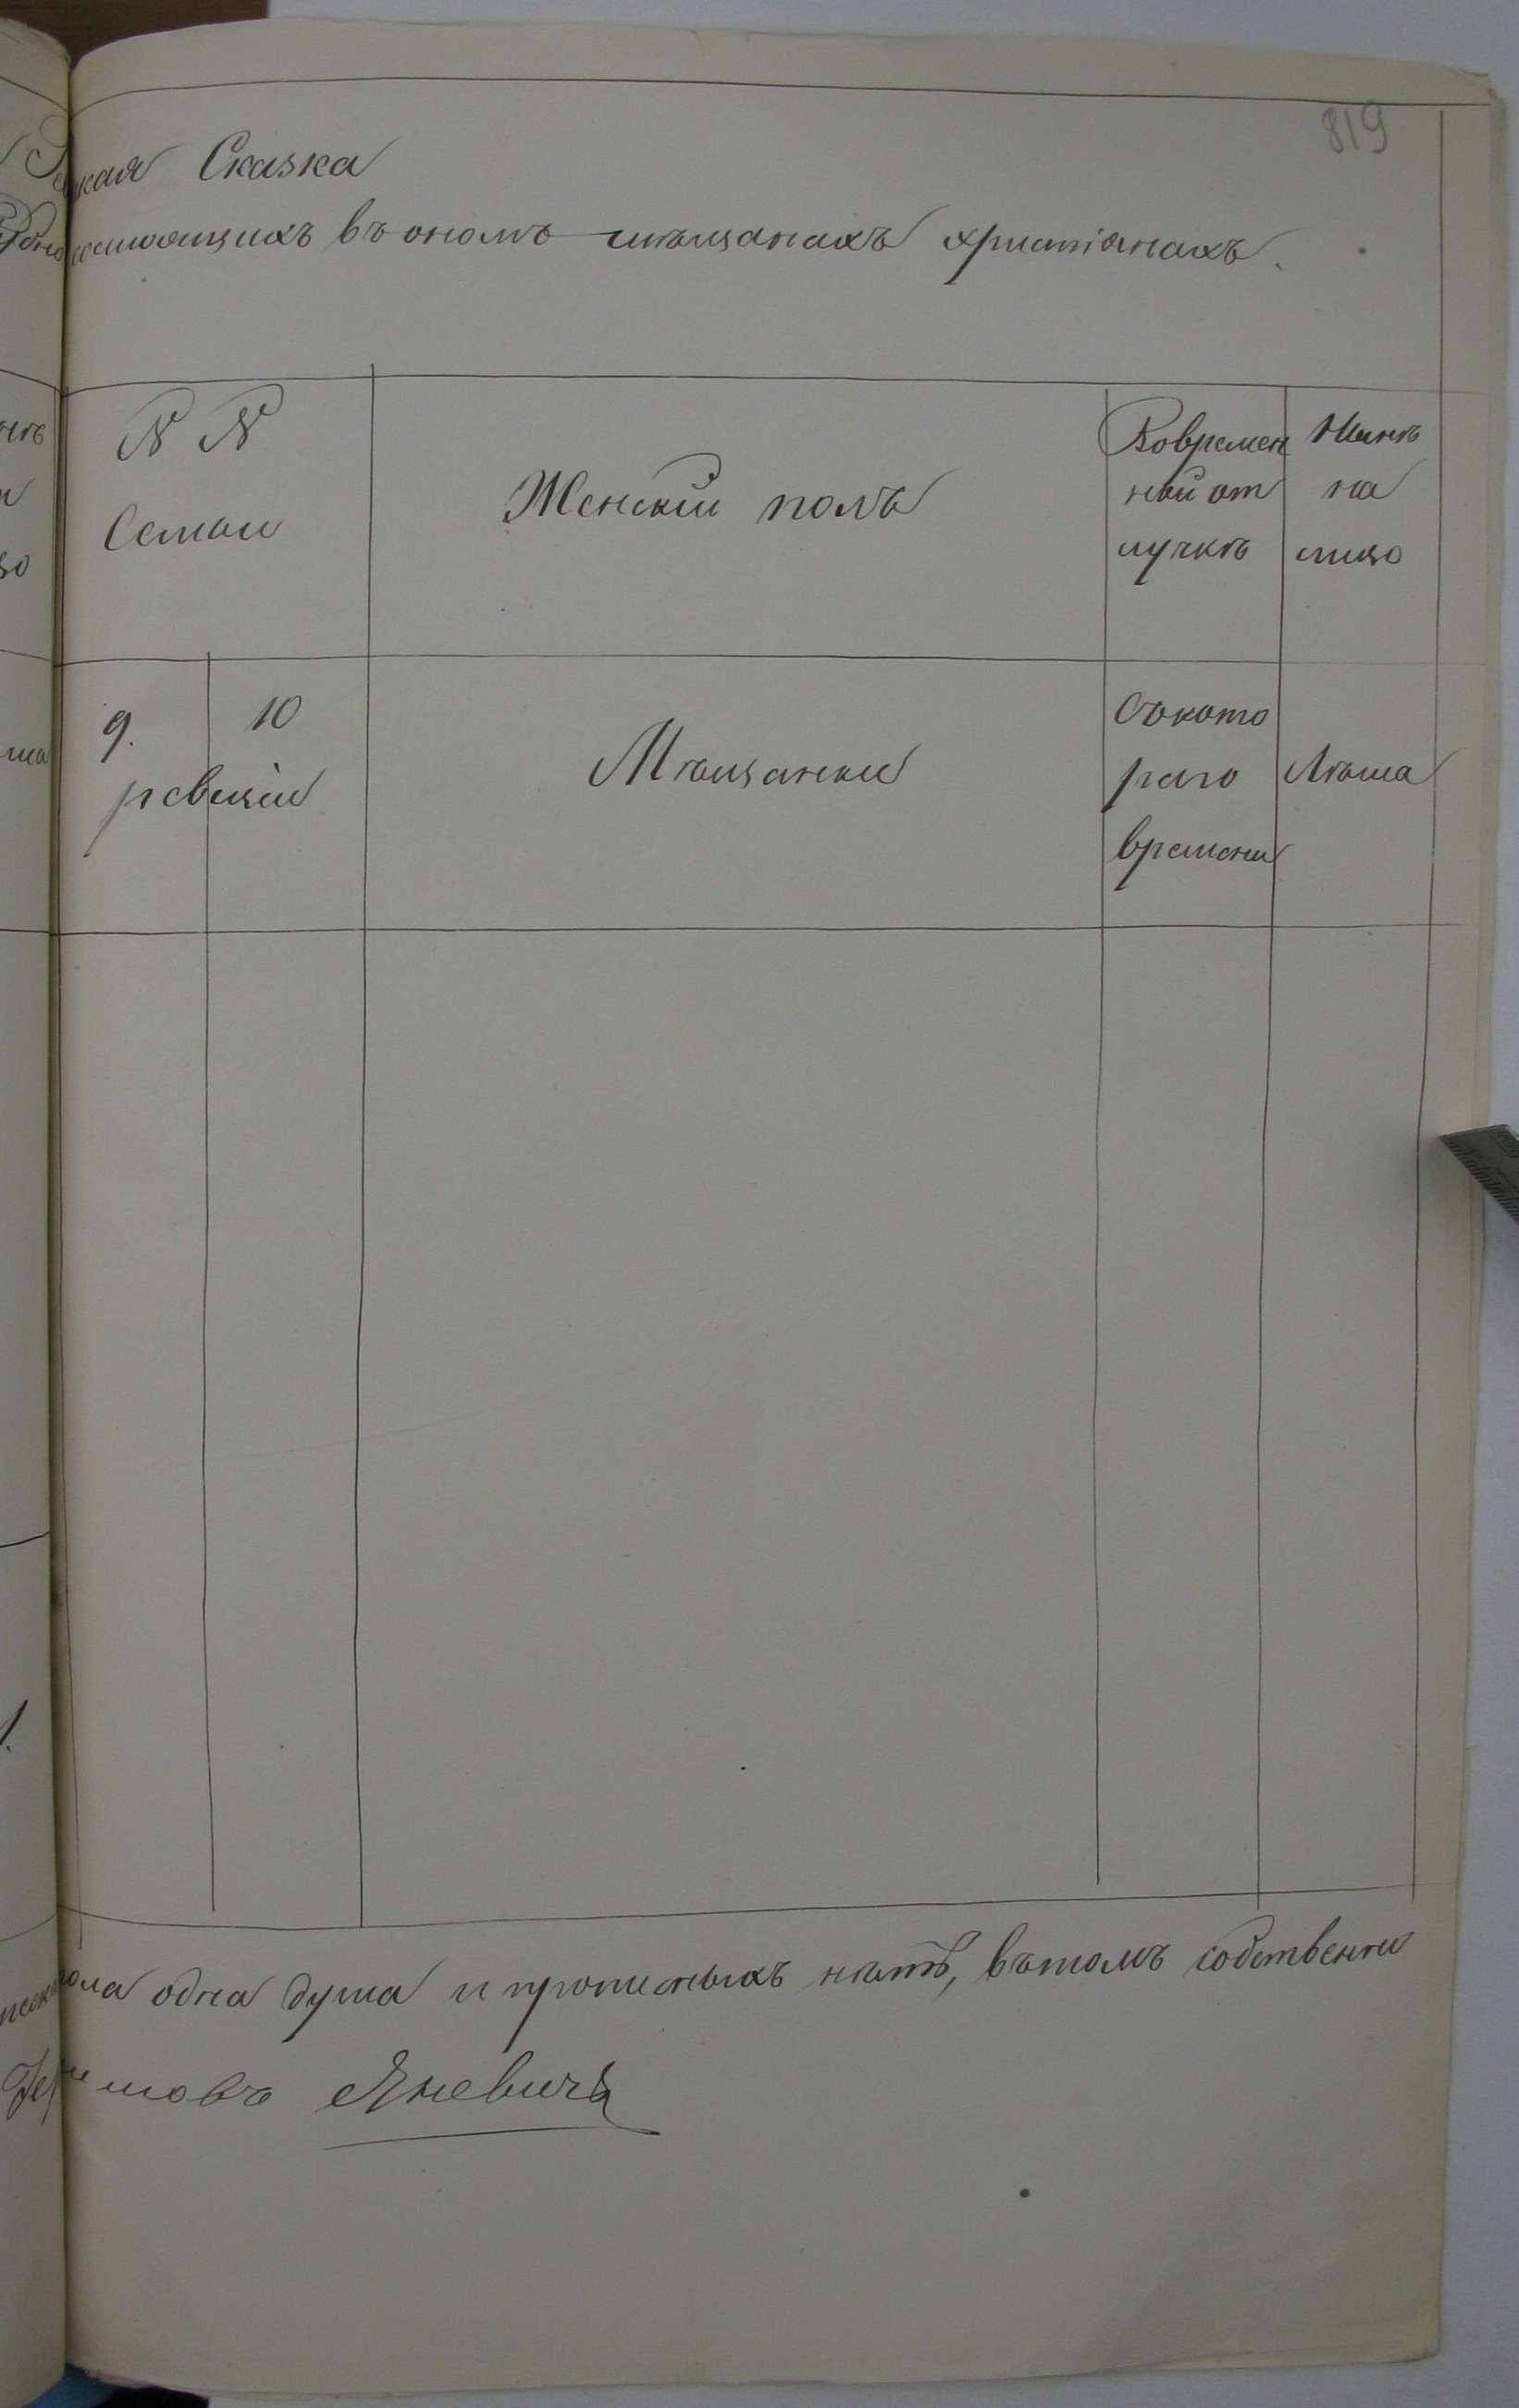 819
Сказка
состоящихъ въ ономъ мѣщанахъ христіанахъ.
N N
Семьи
Женскій полъ
Вовремен
ной от
лучкѣ
Нынѣ
на
лицо
9.
10
ревизіи
Мѣщанки
Съкото
раго
времени
Лѣта
пола одна душа и прописныхъ нѣтъ, вътомъ собственно
Яневичъ